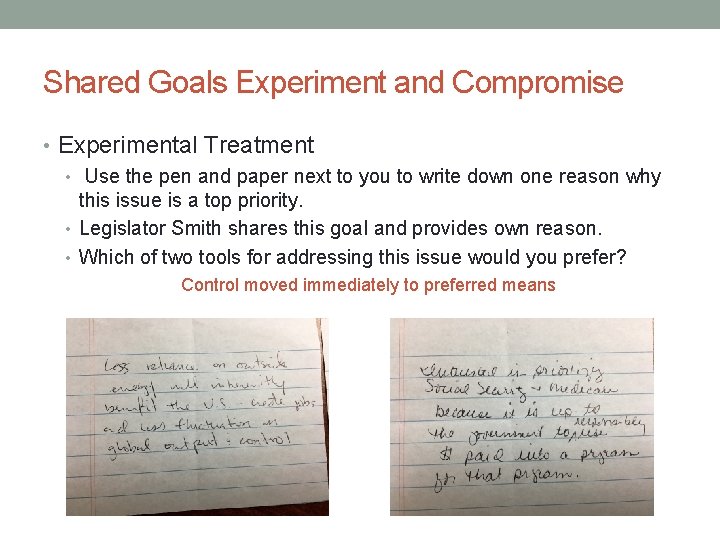 Shared Goals Experiment and Compromise
• Experimental Treatment
• Use the pen and paper next to you to write down one reason why
this issue is a top priority.
• Legislator Smith shares this goal and provides own reason.
• Which of two tools for addressing this issue would you prefer?
Control moved immediately to preferred means
Less reliance on outside
energy will inherently
benefit the U.S - create jobs
and less fluctuation in
global output + control
in priority
Social Security + Medicare
because it is up to
the government to responsibly
$ paid into a prgram
for that prgram.